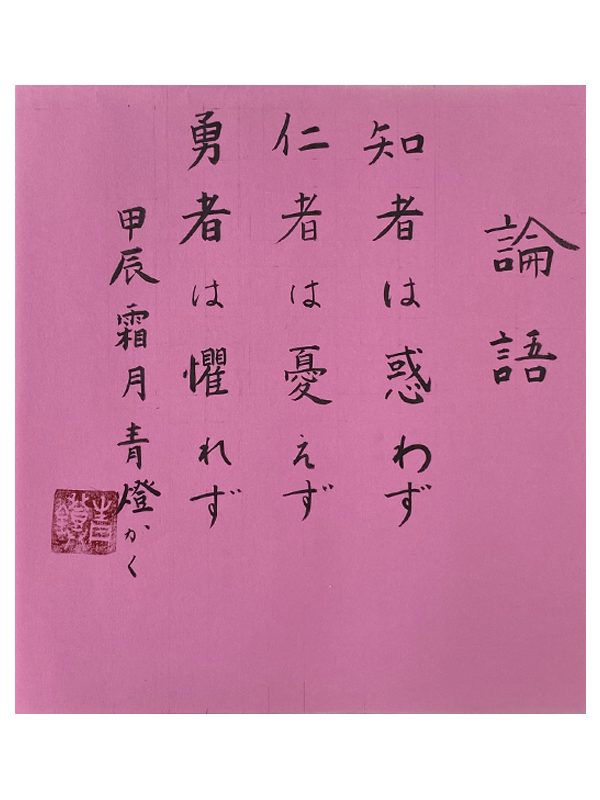 論語
知者は惑わず
仁者は憂えず
勇者は懼れず
甲辰霜月青燈かく